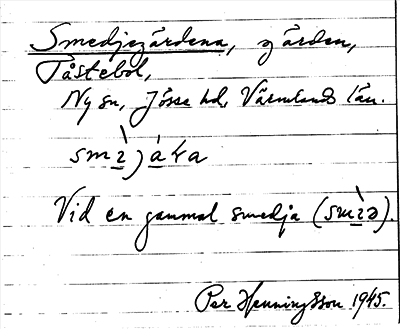 Smedjegärdena, gärden,
Tåstebol,
Ny sn, Jösse hd, Värmlands län.
Vid en gammal smedja
Per Henningsson 1945.